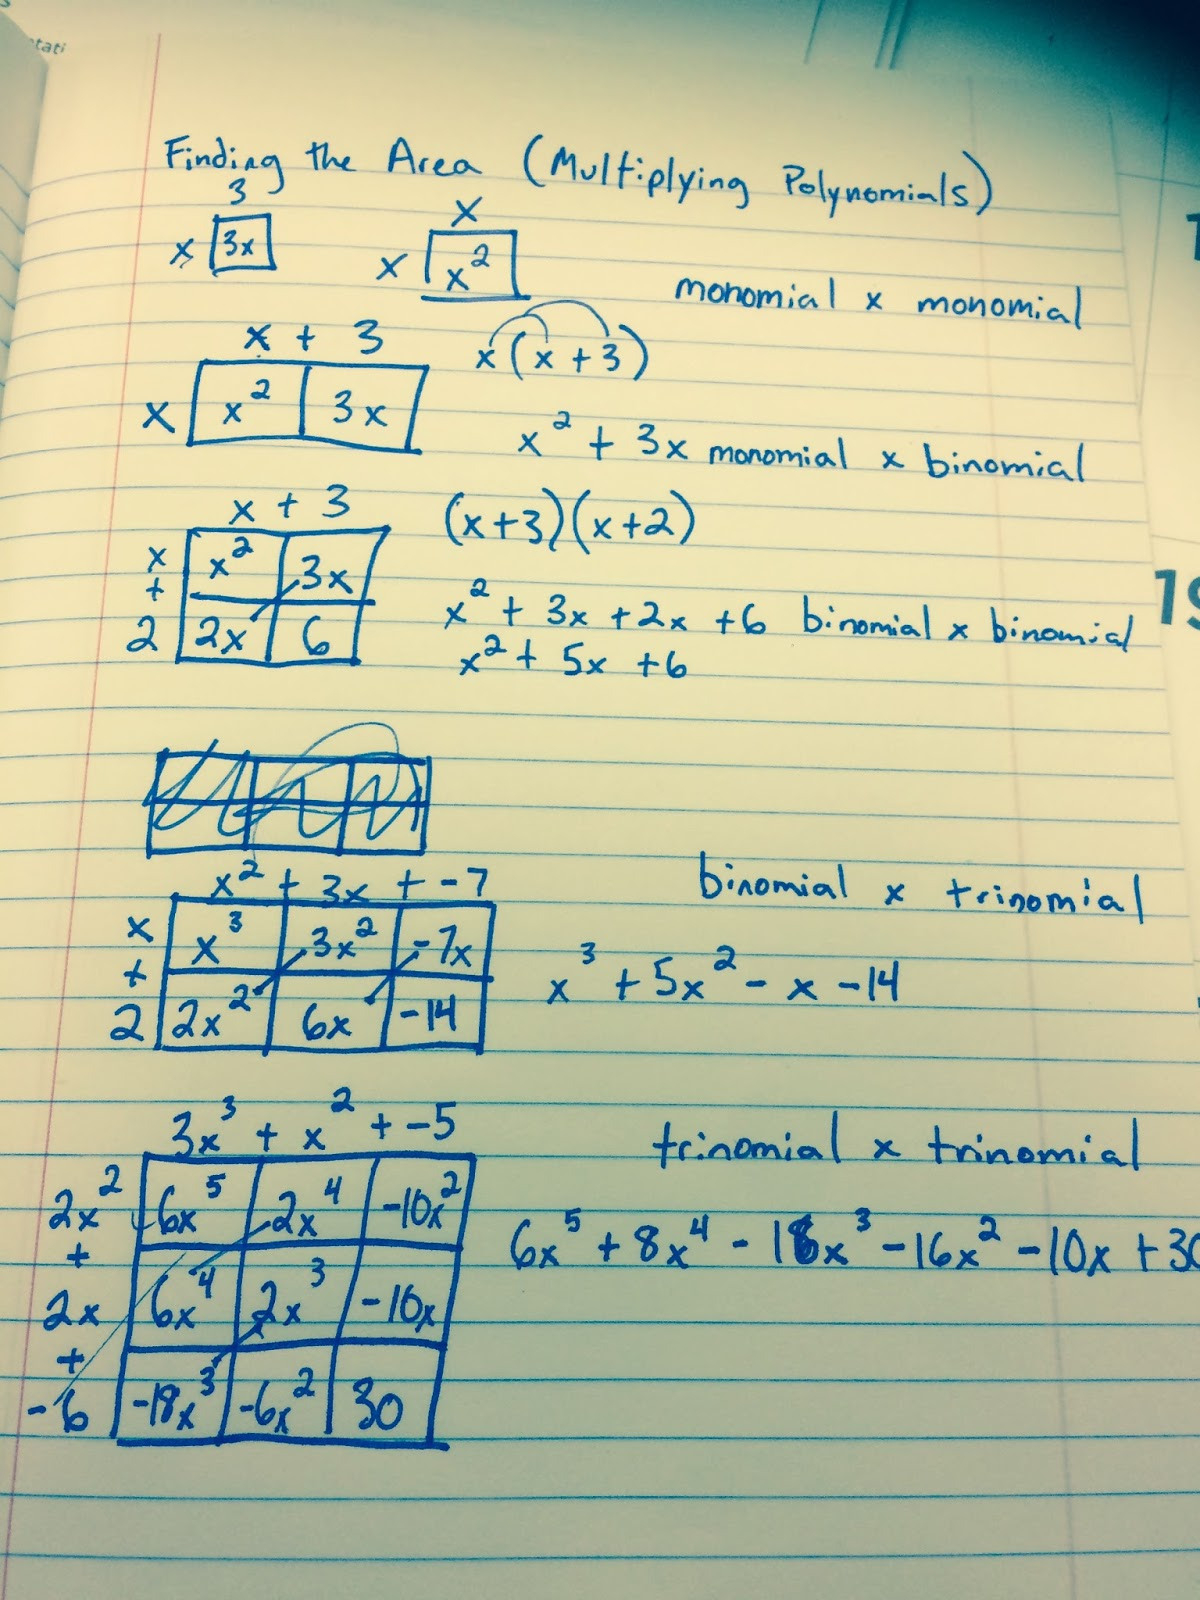 tati
Finding the Area (Multiplying Polynomials)
3
x 3x
x
x x²
monomial x monomial
x + 3
x x² 3x
x(x+3)
x² + 3x monomial x binomial
x + 3
x x² 3x
+
2 2x 6
(x+3)(x+2)
x² + 3x +2x +6 binomial x binomial
x² + 5x +6
19
x² + 3x + -7
x x³ 3x² -7x
+
2 2x² 6x -14
binomial x trinomial
x³ +5x² - x -14
3x³ + x² + -5
2x² 6x⁵ 2x⁴ -10x²
+
2x 6x⁴ 2x³ -10x
+
-6 -18x³ -6x² 30
trinomial x trinomial
6x⁵ + 8x⁴ - 16x³ -16x² -10x +30